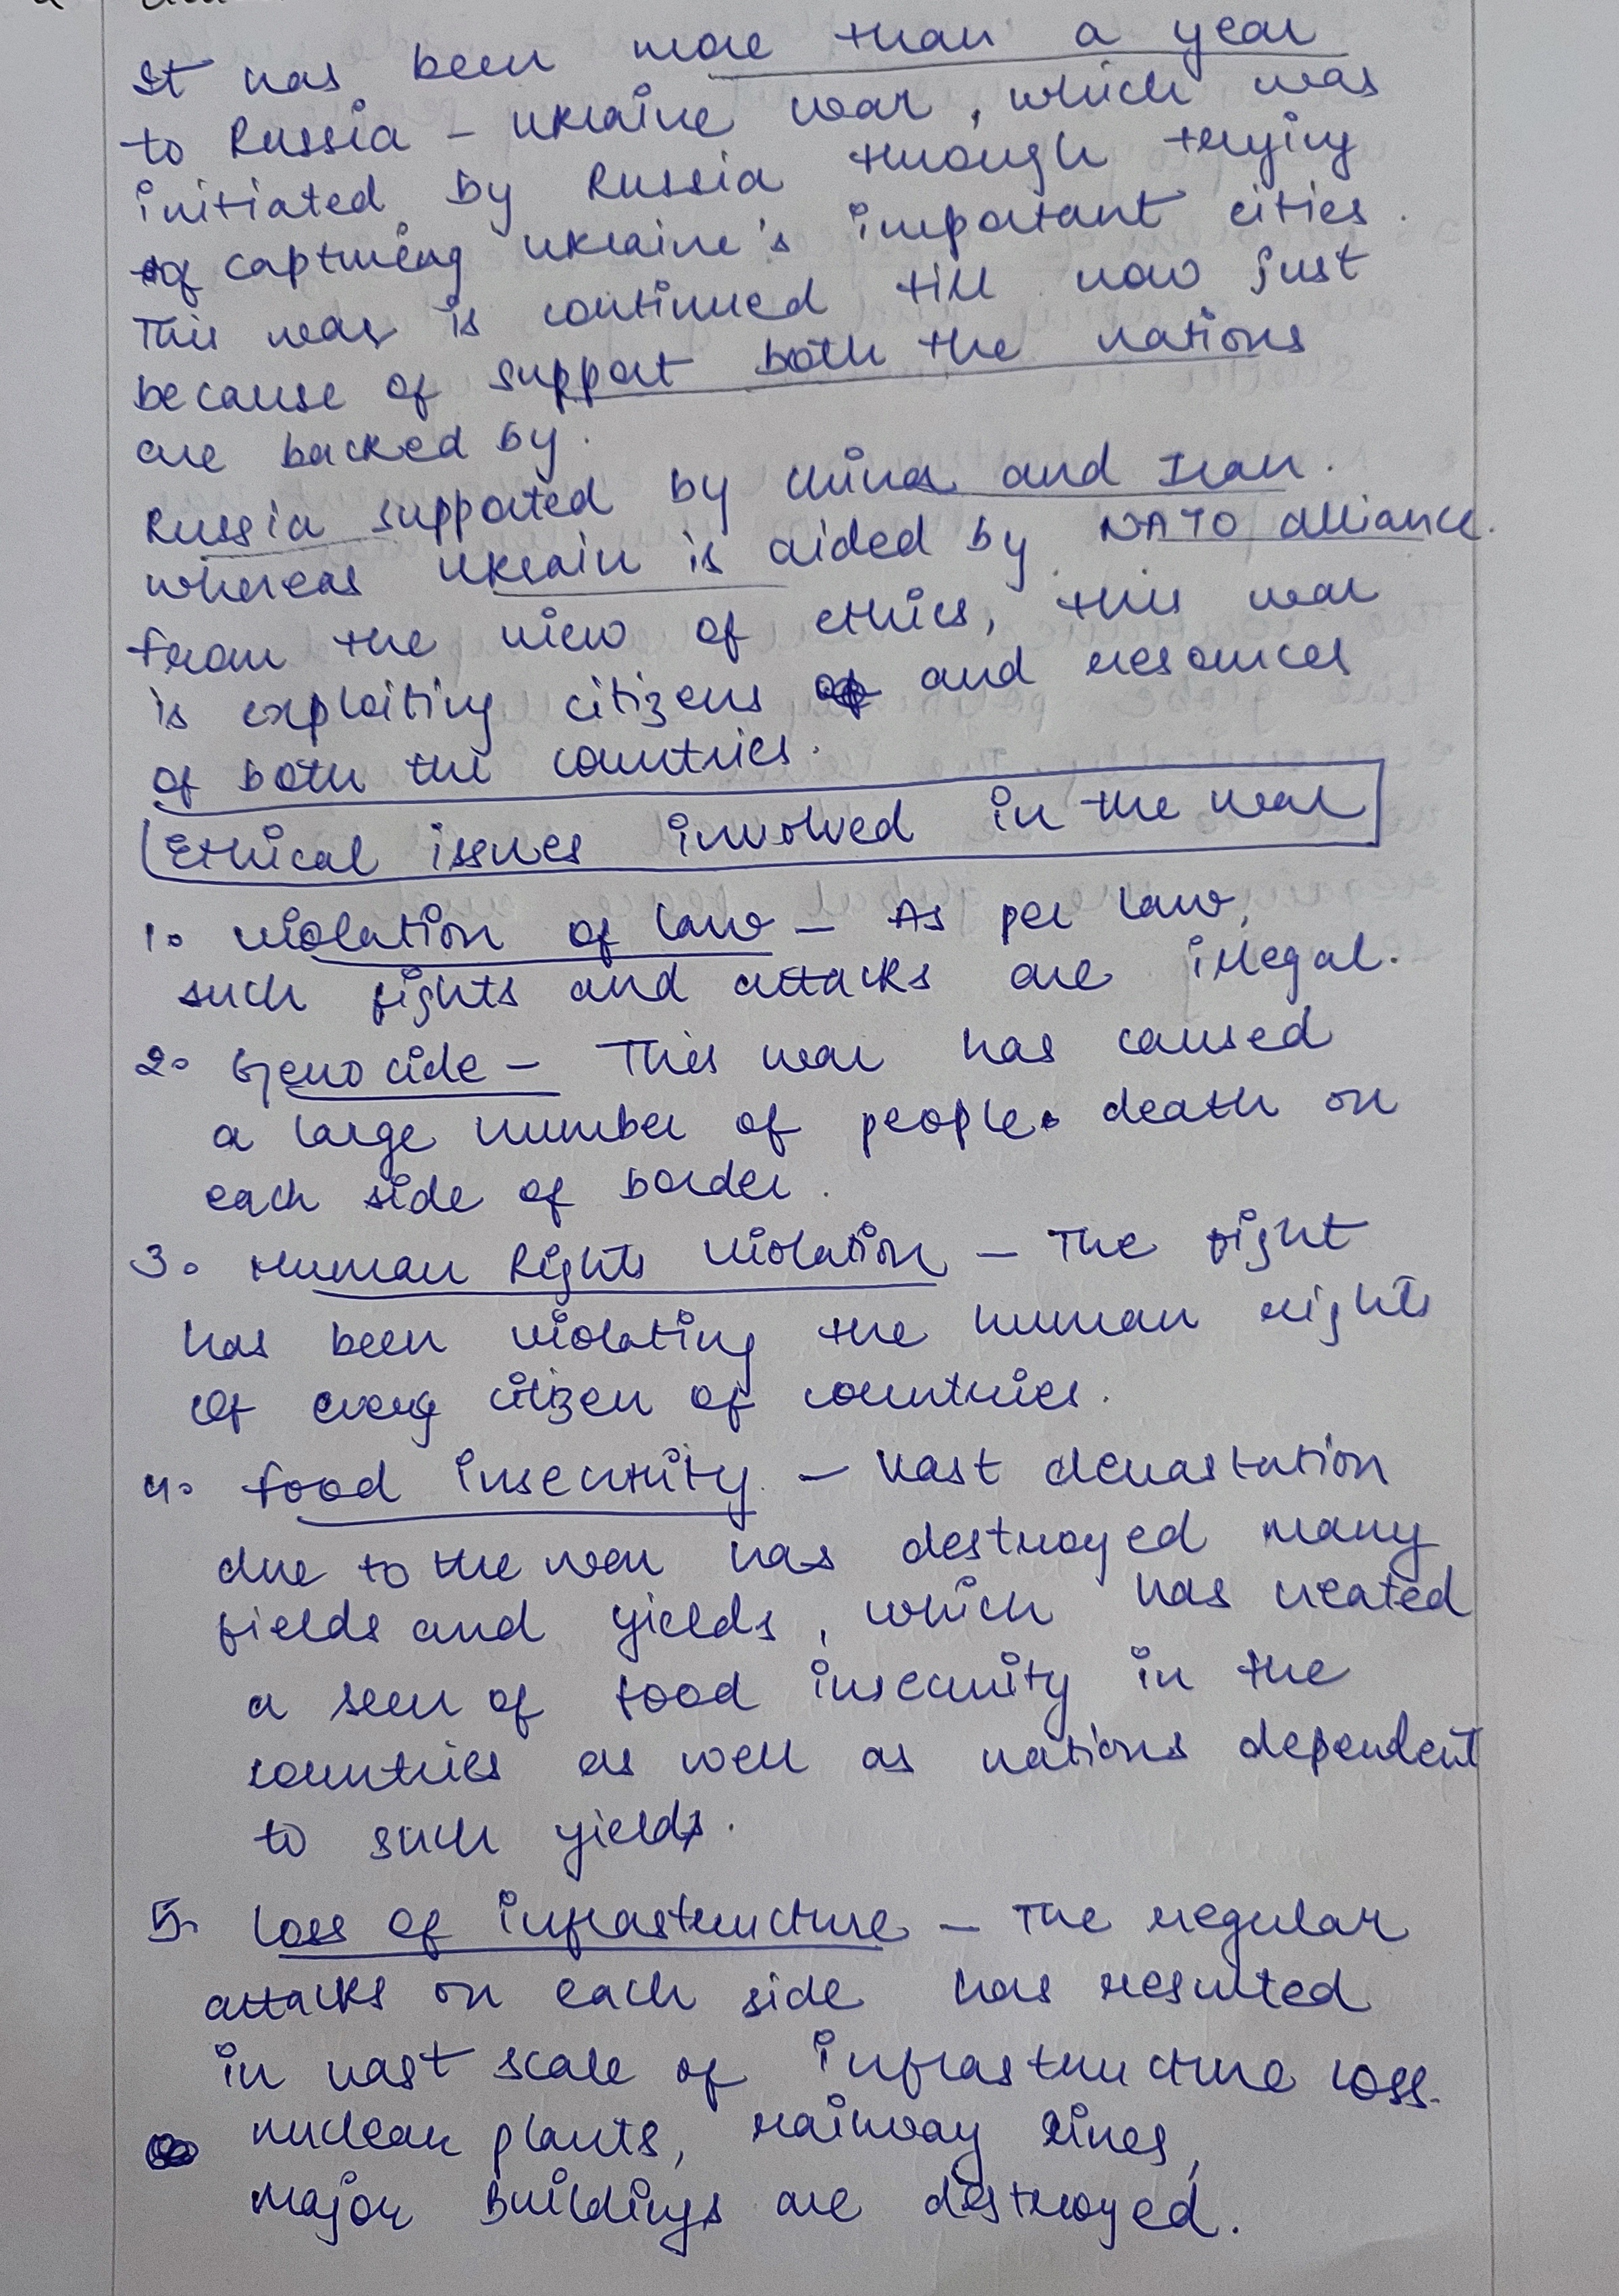 It has been more than a year
to Russia - Ukraine war, which was
initiated by Russia through trying
of capturing Ukraine's important cities.
This war is continued till now just
because of support both the nations
are backed by.
Russia supported by China and Iran.
whereas Ukrain is aided by NATO alliance.
From the view of ethics, this war
is exploiting citizens and resources
of both the countries.
Ethical issues involved in the war
1. Violation of law - As per law,
such fights and attacks are illegal.
2. Genocide - This war has caused
a large number of people death on
each side of border.
3. Human Rights Violation - The fight
has been violating the human rights
of every citizen of countries.
4. Food insecurity - Vast devastation
due to the war has destroyed many
fields and yields, which has created
a seen of food insecurity in the
countries as well as nations dependent
to such yields.
5. Loss of infrastructure - The regular
attacks on each side has resulted
in vast scale of infrastructure loss.
nuclear plants, railway lines,
major buildings are destroyed.